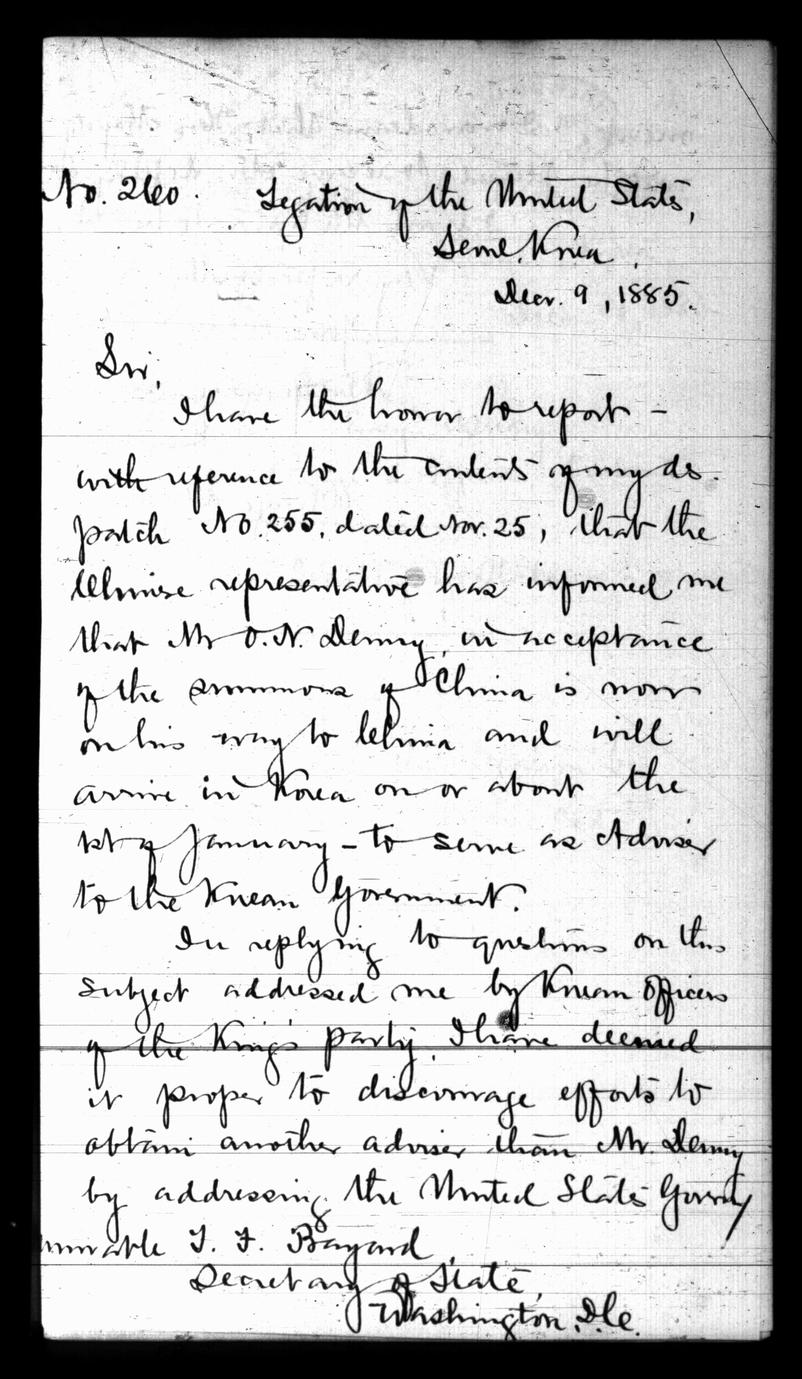 No. 260. Legation of the United States,
Seoul, Korea.
Decr. 9, 1885.
Sir,
I have the honor to report -
with reference to the contents of my des-
patch No. 255, dated Nov. 25, that the
Chinese representative has informed me
that Mr O. N. Denny, in acceptance
of the summons of China is now
on his way to China and will
arrive in Korea on or about the
1st of January - to serve as Adviser
to the Korean Government.
In replying to questions on this
subject addressed me by Korean Officers
of the King's party, I have deemed
it proper to discourage efforts to
obtain another adviser than Mr. Denny
by addressing the United States Govern/
T. F. Bayard,
Secretary of State,
Washington, D.C.